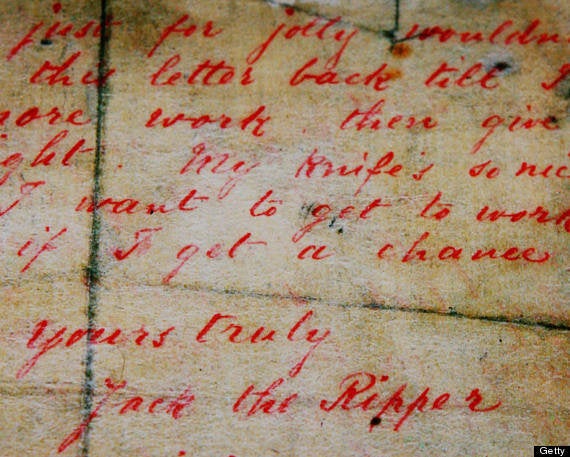 just for jolly wouldn
this letter back till I
more work. then give
ight. My knife's so nic
I want to get to work
if I get a chance
yours truly
Jack the Ripper
Getty